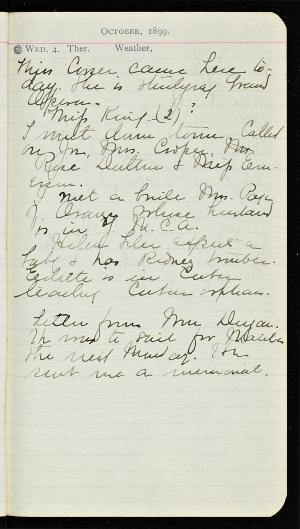 October, 1899.
Wed. 4. Ther. Weather,
Miss came here to-
day. She is studying
Miss King (2)?
I went down town. Called
on Mrs. Cooper, Mrs.
Rose Dutton & Miss Em-
erson.
I met a bride Mrs.
of Orange whose husband
is in Y. M. C. A.
Helen a
baby & has Kidney trouble.
is in Cuba
teaching Cuban orphans.
Letter from Wm
He was to sail for Manila
the next Monday.
sent me a memorial.